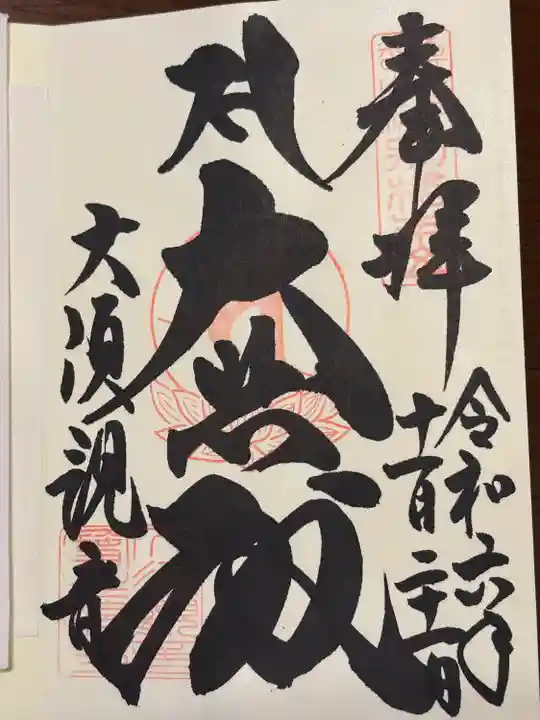 奉拝
令和六年
十一月二十一日
大悲殿
大須観音